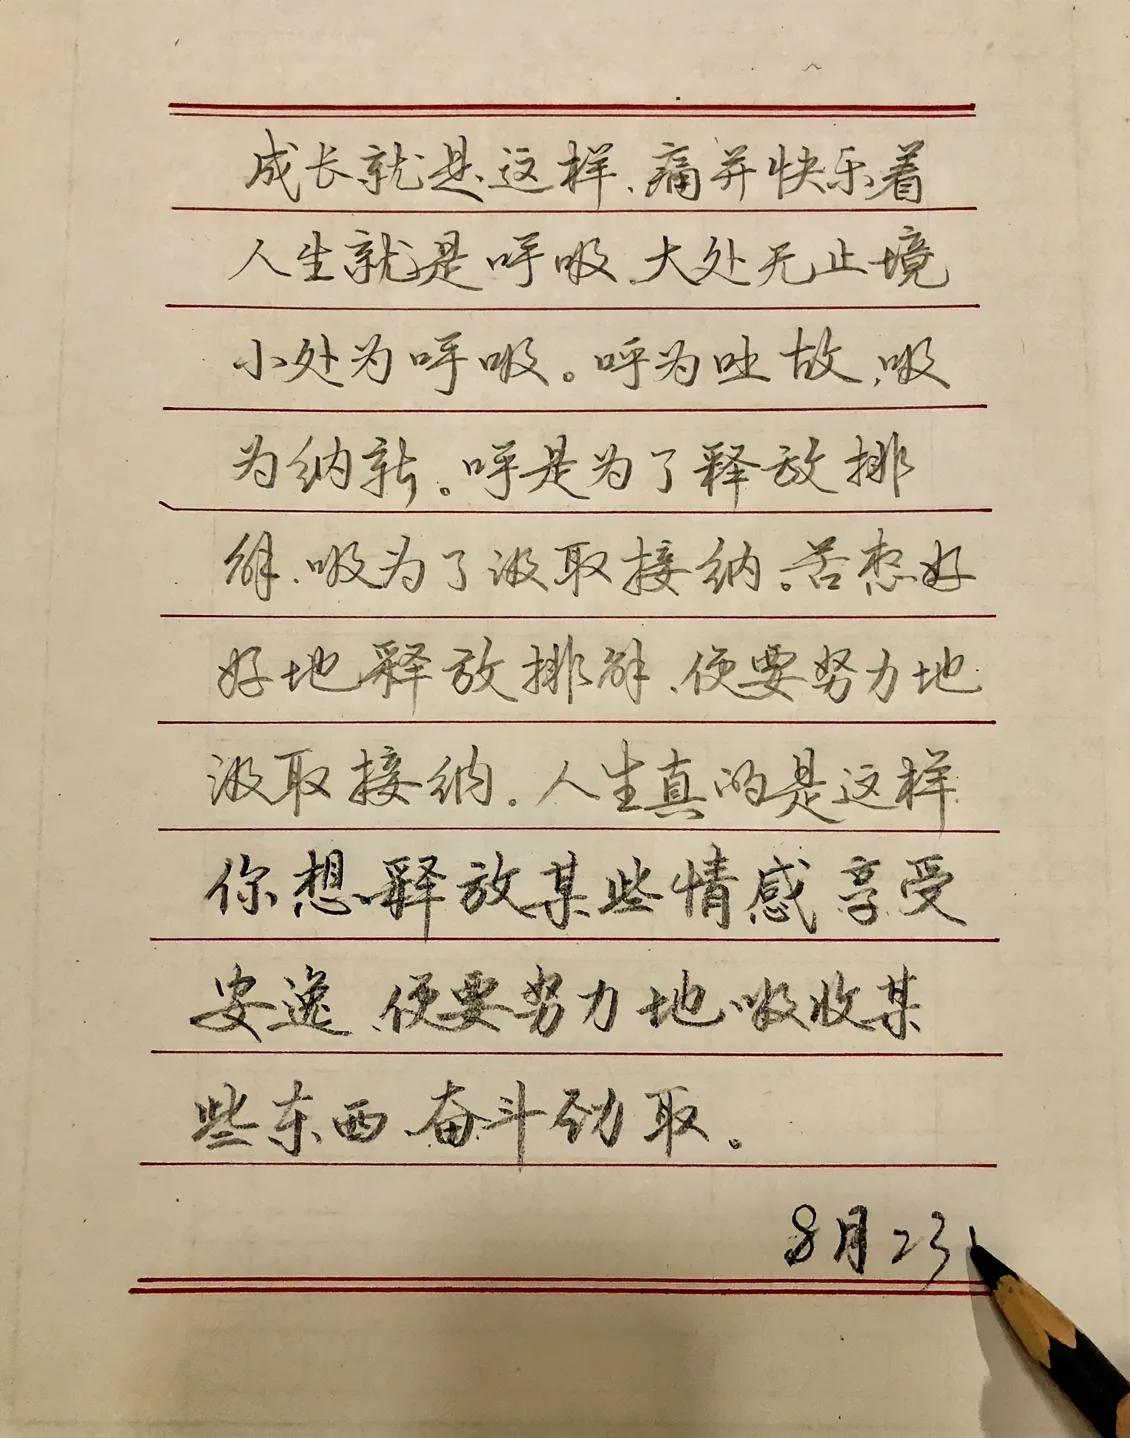 成长就是这样、痛并快乐着
人生就是呼吸、大处无止境
小处为呼吸。呼为吐故、吸
为纳新。呼是为了释放排
解、吸为了汲取接纳。若想好
好地释放排解、便要努力地
汲取接纳。人生真的是这样
你想释放某些情感享受
安逸、便要努力地吸收某
些东西奋斗劲取。
8月23